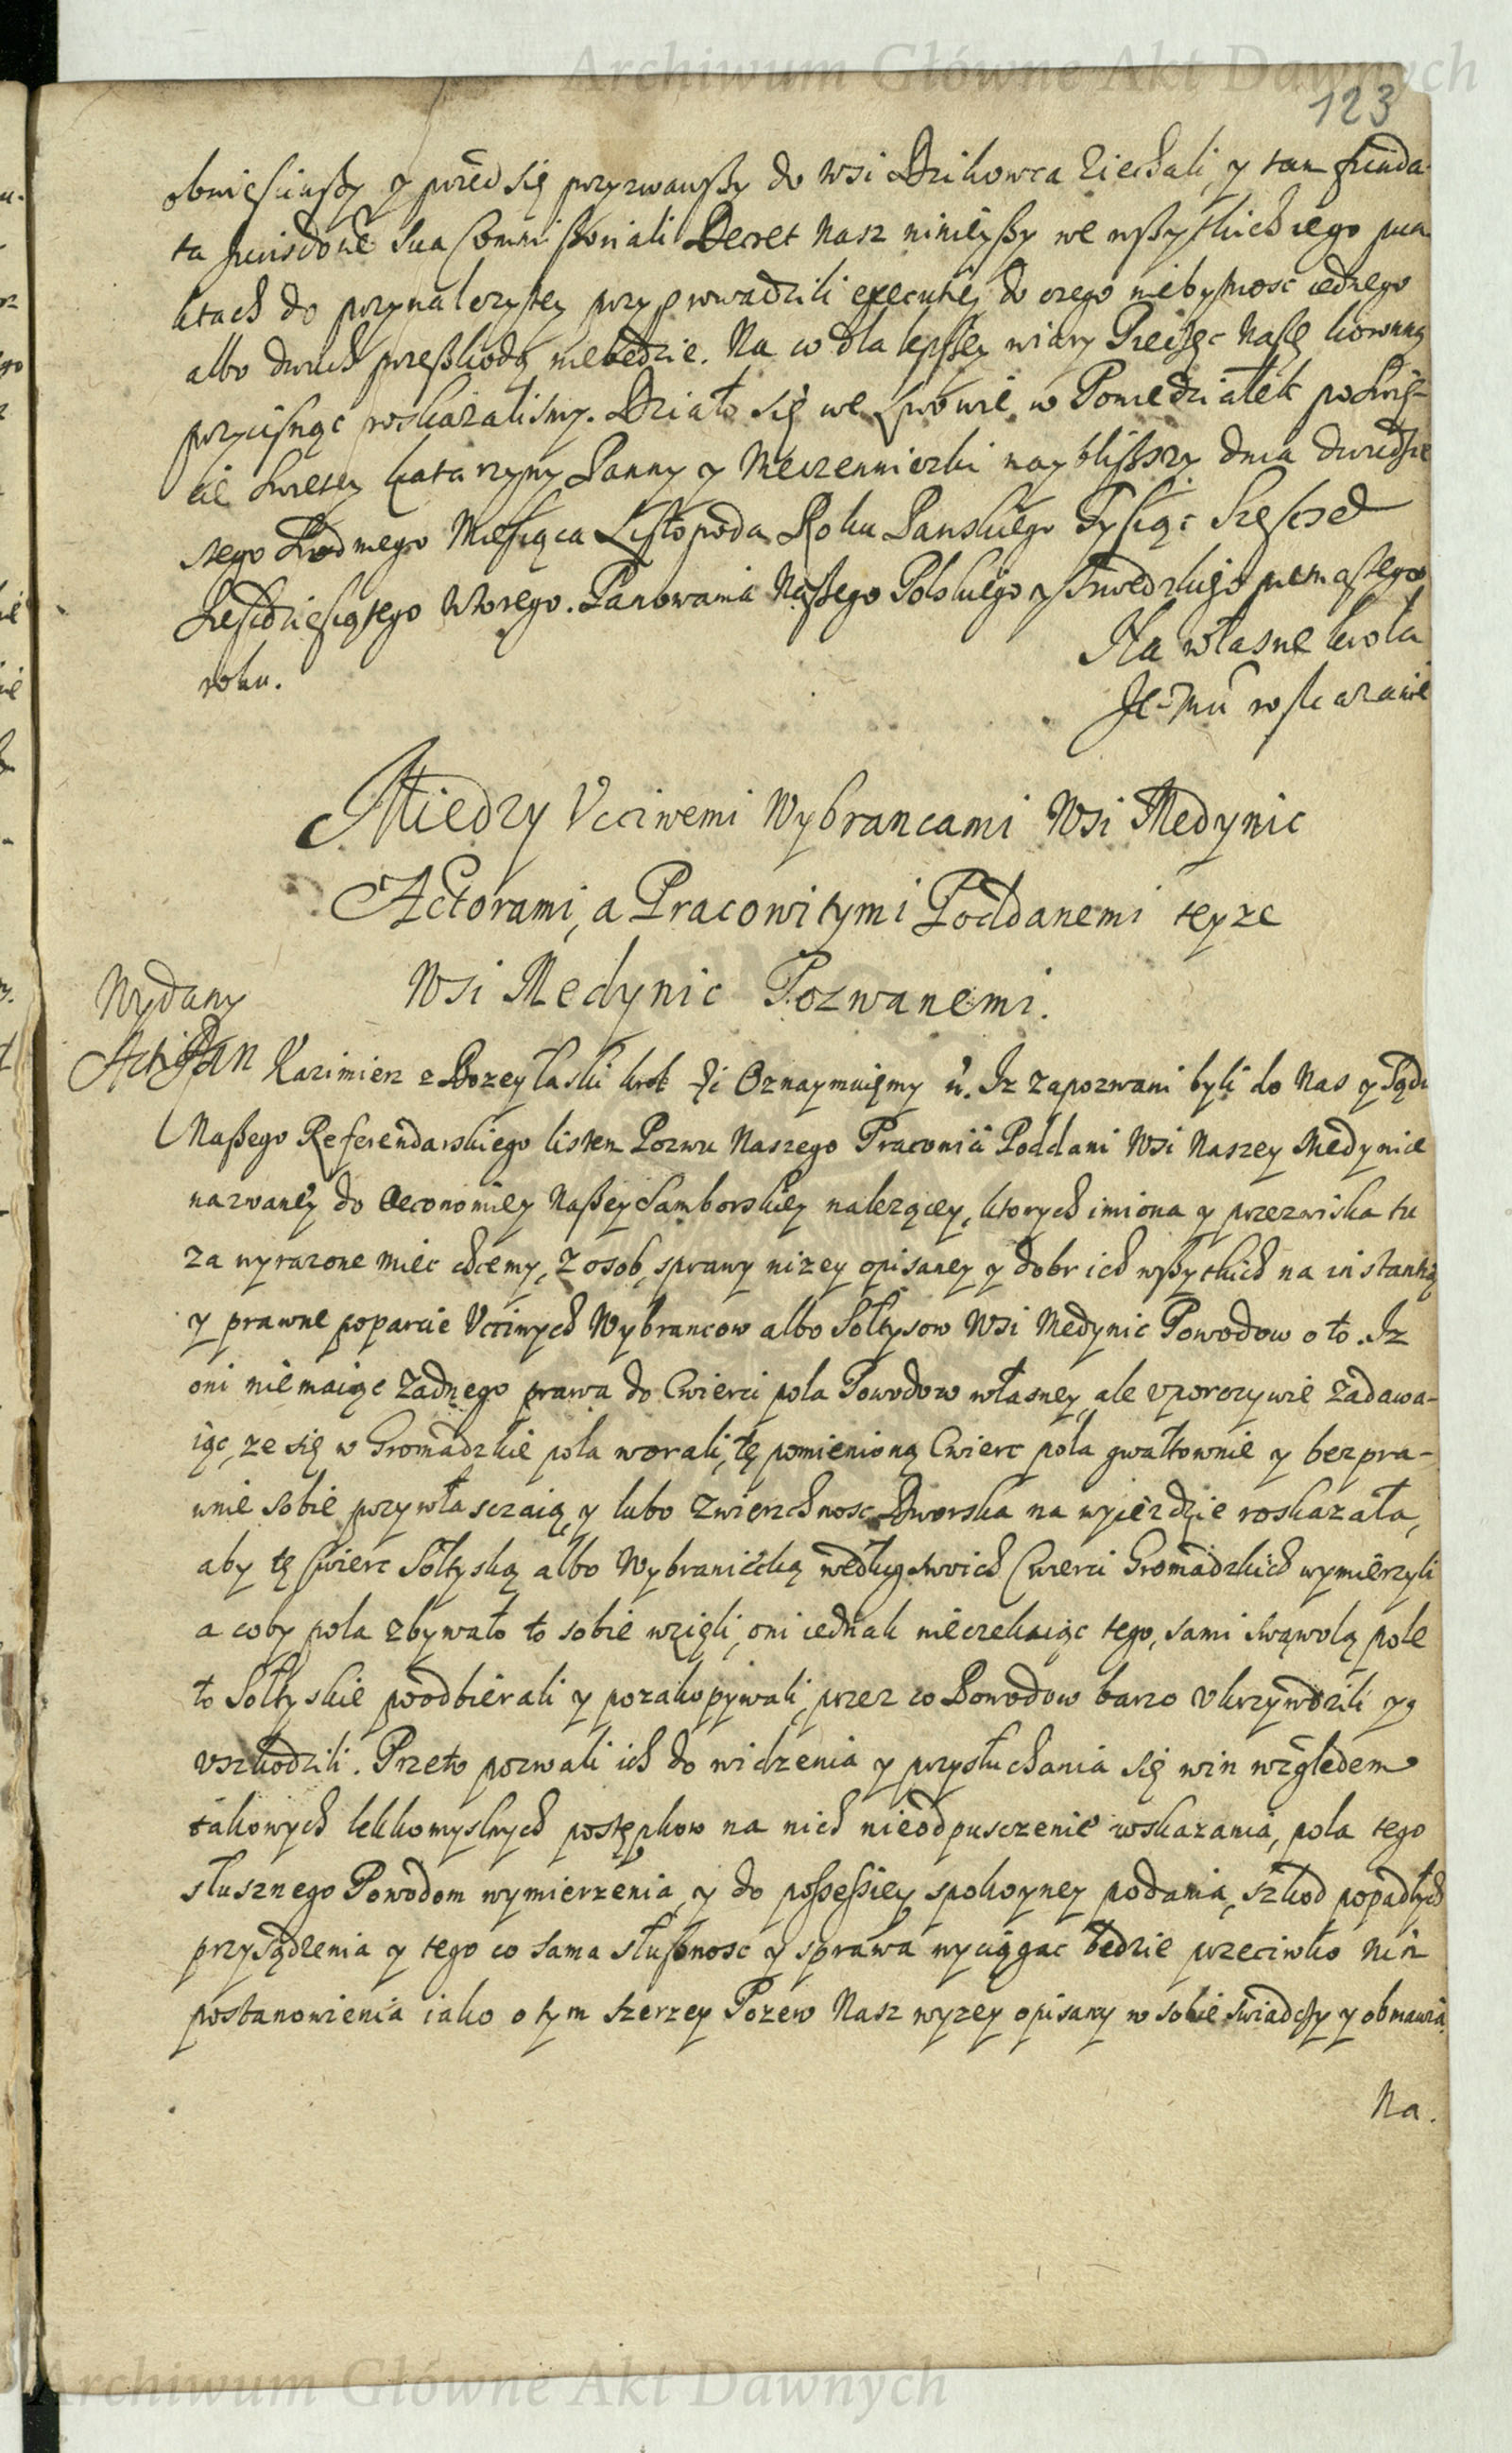 Archiwum Główne Akt Dawnych
123
obwiesciwszy y przed się przyzwawszy do wsi Dzikowca ziechali, y tam funda-
ta Jurisdone sua Commissoriali Decret Nasz ninieyszy we wszystkich iego pun
ktach do przynalezytey przyprowadzili executiey do czego niebytnosc iednego
albo dwuch przeszkodą niebędzie. Na co dla lepszey wiary Pieczęc Naszę koronną
przycisnąc roskazalismy. Działo się we Lwowie w Poniedziałek po Swię-
cie Swietey Katarzyny Panny y Męczenniczki nayblizszy dnia dwudzie
stego Siodmego Miesiąca Listopada Roku Panskiego Tysiąc Szescset
Szescdziesiątego Wtorego. Panowania Naszego Polskiego y Szwedzkiego
roku.
Na własne krola
Je-Mci roskazanie
Miedzy Vcciwemi Wybrancami Wsi Medynic
Actorami, a Pracowitymi Poddanemi teyze
Wsi Medynic Pozwanemi.
Wydany
Act.
Jan Kazimierz z Bozey łaski krol Pi Oznaymuięmy &c. Iz zapozwani byli do Nas y Sądu
Naszego Referendarskiego listem Pozwu Naszego Pracowici Poddani Wsi Naszey Medynice
nazwaney do Oeconomiey Naszey Samborskiey nalezącey, ktorych imiona y przezwiska tu
za wyrazone miec chcemy, z osob, sprawy nizey opisaney y dobr ich wszytkich na instantią
y prawne poparcie Vcciwych Wybrancow albo Sołtysow Wsi Medynic Powodow o to. Iz
oni niemaiąc zadnego prawa do Cwierci pola Powodow własney, ale vporczywie zadawa-
iąc, ze się w Gromadzkie pola worali, tę pomienioną Cwierc pola gwałtownie y bezpra-
wnie sobie przywłasczaią, y lubo Zwierzchnosc Dworska na wyieżdzie roskazała,
aby tę Cwierc Sołtyską albo Wybraniecką według swoich Cwierci Gromadzkich wymierzyli
a coby pola zbywało to sobie wzięli, oni iednak nieczekaiąc tego, sami swąwolą pole
to Sołtyskie poodbierali y pozakopywali, przez co Powodow barzo vkrzywdzili y
vszkodzili. Przeto pozwali ich do widzenia y przysłuchania się win względem
takowych lekkomyslnych postępkow na nich nieodpusczenie wskazania, pola tego
słusznego Powodom wymierzenia, y do possessiey spokoyney podania, szkod popadłych
przysądzenia y tego co sama słusznosc y sprawa wyciągac będzie przeciwko nim
postanowienia iako o tym szerzey Pozew Nasz wyzey opisany w sobie swiadczy y obmawia.
Na.
Archiwum Główne Akt Dawnych